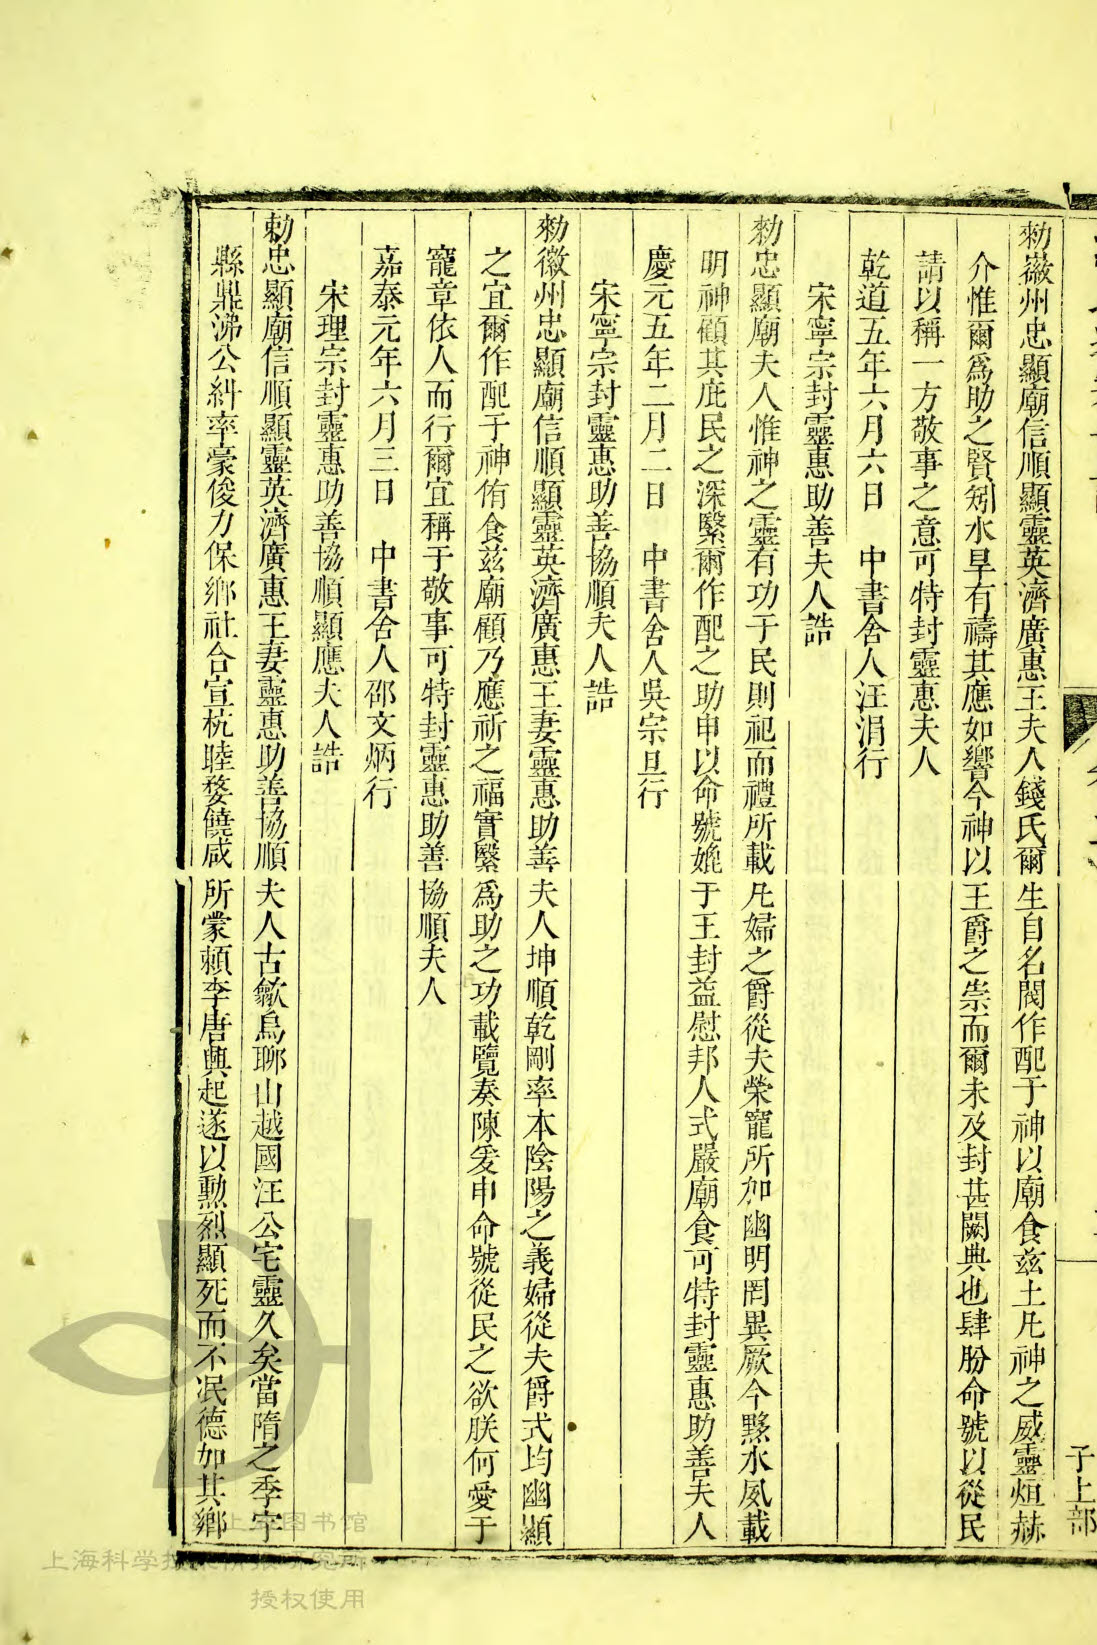 勑徽州忠顯廟信順顯靈英濟廣惠王夫人錢氏爾生自名閥作配于神以廟食茲土凡神之威靈烜赫
介惟爾爲助之賢矧水旱有禱其應如響今神以王爵之崇而爾未及封甚闕典也肆肦命號以從民
請以稱一方敬事之意可特封靈惠夫人
乾道五年六月六日 中書舍人汪涓行
宋寧宗封靈惠助善夫人誥
勑忠顯廟夫人惟神之靈有功于民則祀而禮所載凡婦之爵從夫榮寵所加幽明罔異厥今黟水夙載
明神顧其庇民之深繄爾作配之助申以命號媲于王封益慰邦人式嚴廟食可特封靈惠助善夫人
慶元五年二月二日 中書舍人吳宗旦行
宋寧宗封靈惠助善協順夫人誥
勑徽州忠顯廟信順顯靈英濟廣惠王妻靈惠助善夫人坤順乾剛率本陰陽之義婦從夫爵式均幽顯
之宜爾作配于神侑食茲廟顧乃應祈之福實繄爲助之功載覽奏陳爰申命號從民之欲朕何愛于
寵章依人而行爾宜稱于敬事可特封靈惠助善協順夫人
嘉泰元年六月三日 中書舍人邵文炳行
宋理宗封靈惠助善協順顯應夫人誥
勑忠顯廟信順顯靈英濟廣惠王妻靈惠助善協順夫人古歙烏聊山越國汪公宅靈久矣當隋之季宇
縣鼎沸公糾率豪俊力保鄉社合宣杭睦婺饒咸所蒙賴李唐興起遂以勲烈顯死而不冺德加其鄉
子上部
上海图书馆
上海科学技术情报研究所
授权使用